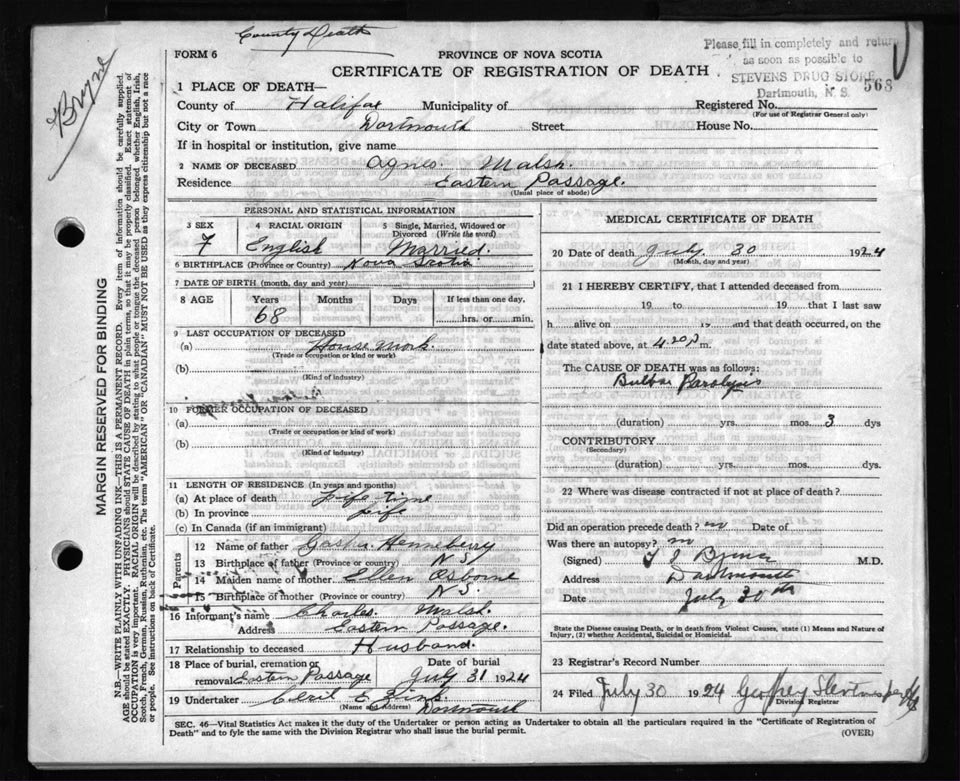 County Death
FORM 6
PROVINCE OF NOVA SCOTIA
Please fill in completely and return
as soon as possible to
STEVENS DRUG STORE
Dartmouth, N. S.
568
CERTIFICATE OF REGISTRATION OF DEATH
1 PLACE OF DEATH—
County of Halifax Municipality of Registered No.
(For use of Registrar General only)
City or Town Dartmouth Street House No.
If in hospital or institution, give name
2 NAME OF DECEASED Agnes Walsh
Residence Eastern Passage.
(Usual place of abode)
PERSONAL AND STATISTICAL INFORMATION
3 SEX 4 RACIAL ORIGIN 5 Single, Married, Widowed or Divorced (Write the word)
F English Married.
6 BIRTHPLACE (Province or Country) Nova Scotia
7 DATE OF BIRTH (month, day and year)
8 AGE Years Months Days If less than one day,
68 hrs. or min.
9 LAST OCCUPATION OF DECEASED
(a) House Work
(Trade or occupation or kind or work)
(b)
(Kind of industry)
10 FORMER OCCUPATION OF DECEASED
(a)
(Trade or occupation or kind of work)
(b)
(Kind of industry)
11 LENGTH OF RESIDENCE (In years and months)
(a) At place of death Life time
(b) In province Life
(c) In Canada (if an immigrant)
Parents
12 Name of father Henneberry
13 Birthplace of father (Province or country) N S
14 Maiden name of mother Ellen Osborne
15 Birthplace of mother (Province or country) N S.
16 Informant's name Charles Walsh
Address Eastern Passage.
17 Relationship to deceased Husband.
18 Place of burial, cremation or removal Eastern Passage
Date of burial July 31 1924
19 Undertaker Cecil E. Zink
(Name and Address) Dartmouth
MEDICAL CERTIFICATE OF DEATH
20 Date of death July 30 1924
(Month, day and year)
21 I HEREBY CERTIFY, that I attended deceased from
19 to 19 that I last saw
h alive on 19 and that death occurred, on the
date stated above, at 4.20 p m.
The CAUSE OF DEATH was as follows:
Bulbar Paralysis
(duration) yrs. mos. 3 dys
CONTRIBUTORY
(Secondary)
(duration) yrs. mos. dys.
22 Where was disease contracted if not at place of death?
Did an operation precede death? no Date of
Was there an autopsy? no
(Signed) M.D.
Address Dartmouth
Date July 30th
State the Disease causing Death, or in death from Violent Causes, state (1) Means and Nature of
Injury, (2) whether Accidental, Suicidal or Homicidal.
23 Registrar's Record Number
24 Filed July 30 1924 Geoffrey Stevens per
Division Registrar
SEC. 46—Vital Statistics Act makes it the duty of the Undertaker or person acting as Undertaker to obtain all the particulars required in the "Certificate of Registration of
Death" and to fyle the same with the Division Registrar who shall issue the burial permit.
(OVER)
Byrne
MARGIN RESERVED FOR BINDING
N.B.—WRITE PLAINLY WITH UNFADING INK—THIS IS A PERMANENT RECORD. Every item of information should be carefully supplied.
AGE should be stated EXACTLY. PHYSICIANS should STATE CAUSE OF DEATH in plain terms, so that it may be properly classified. Exact statement of
OCCUPATION is very important. RACIAL ORIGIN will be described by stating to what people or tongue the deceased person belonged, whether English, Irish,
Scotch, French, German, Russian, Ruthenian, etc. The terms "AMERICAN" or "CANADIAN" MUST NOT BE USED as they express citizenship but not a race
or people. See instructions on back of Certificate.